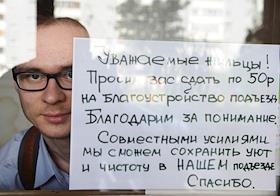 Уважаемые жильцы!
Просим вас сдать по 50р
на благоустройство подъезда
Благодарим за понимание,
Совместными усилиями
мы сможем сохранить уют
и чистоту в НАШЕМ подъезде
Спасибо.